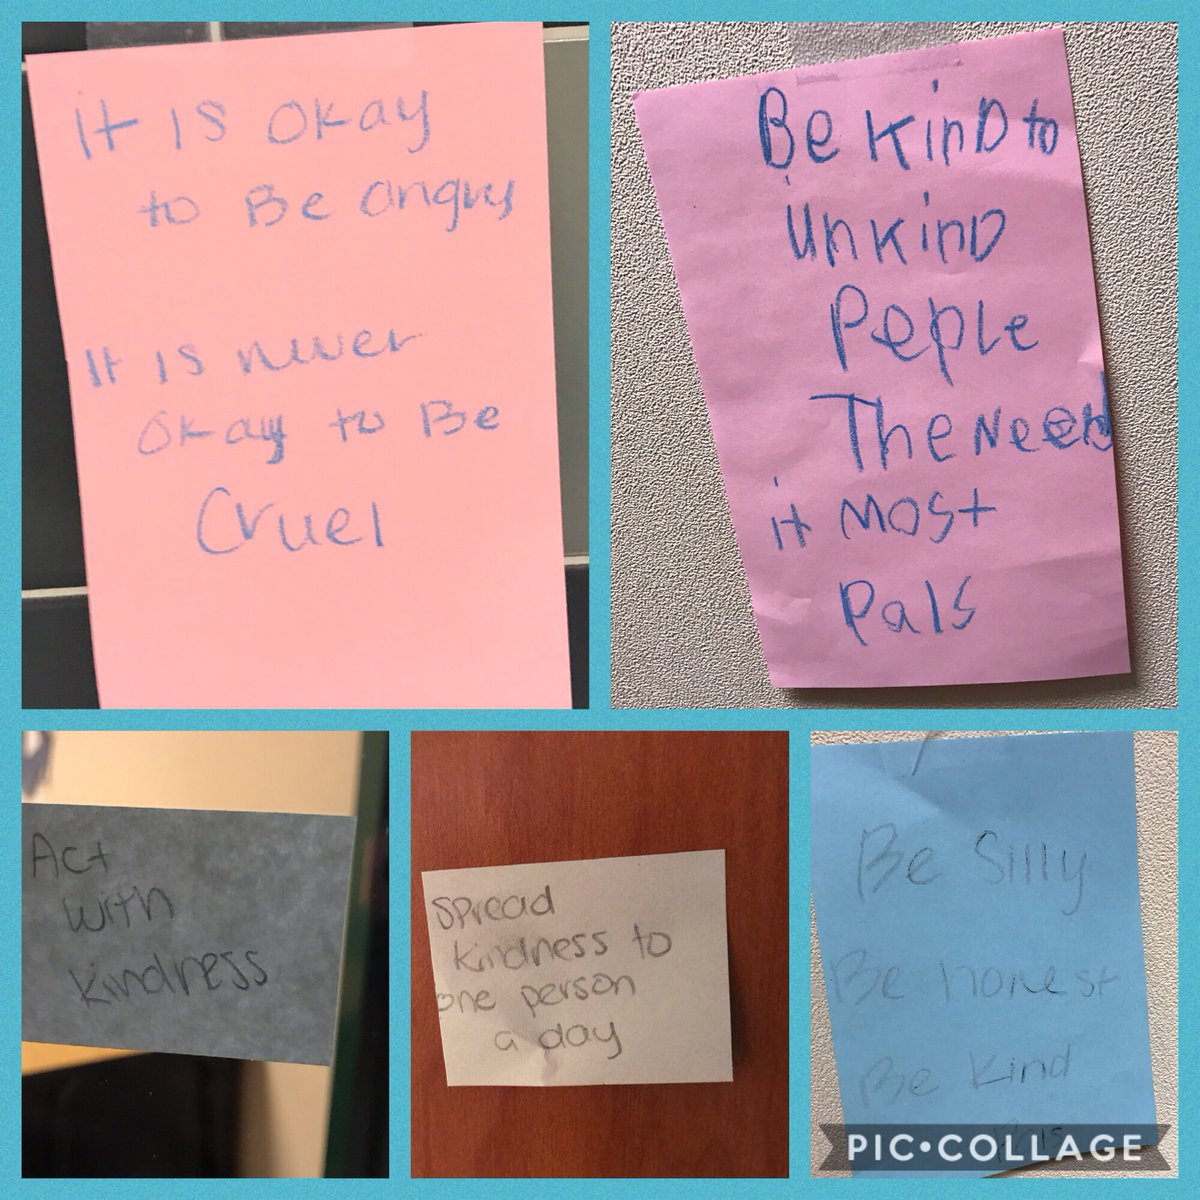 it is okay
to Be angry
It is never
okay to Be
Cruel
Be Kind to
UnKind
Peple
The Need
it MOST
Pals
Act
with
kindness
Spread
kindness to
one person
a day
Be Silly
Be honest
Be Kind
Pals
PIC•COLLAGE